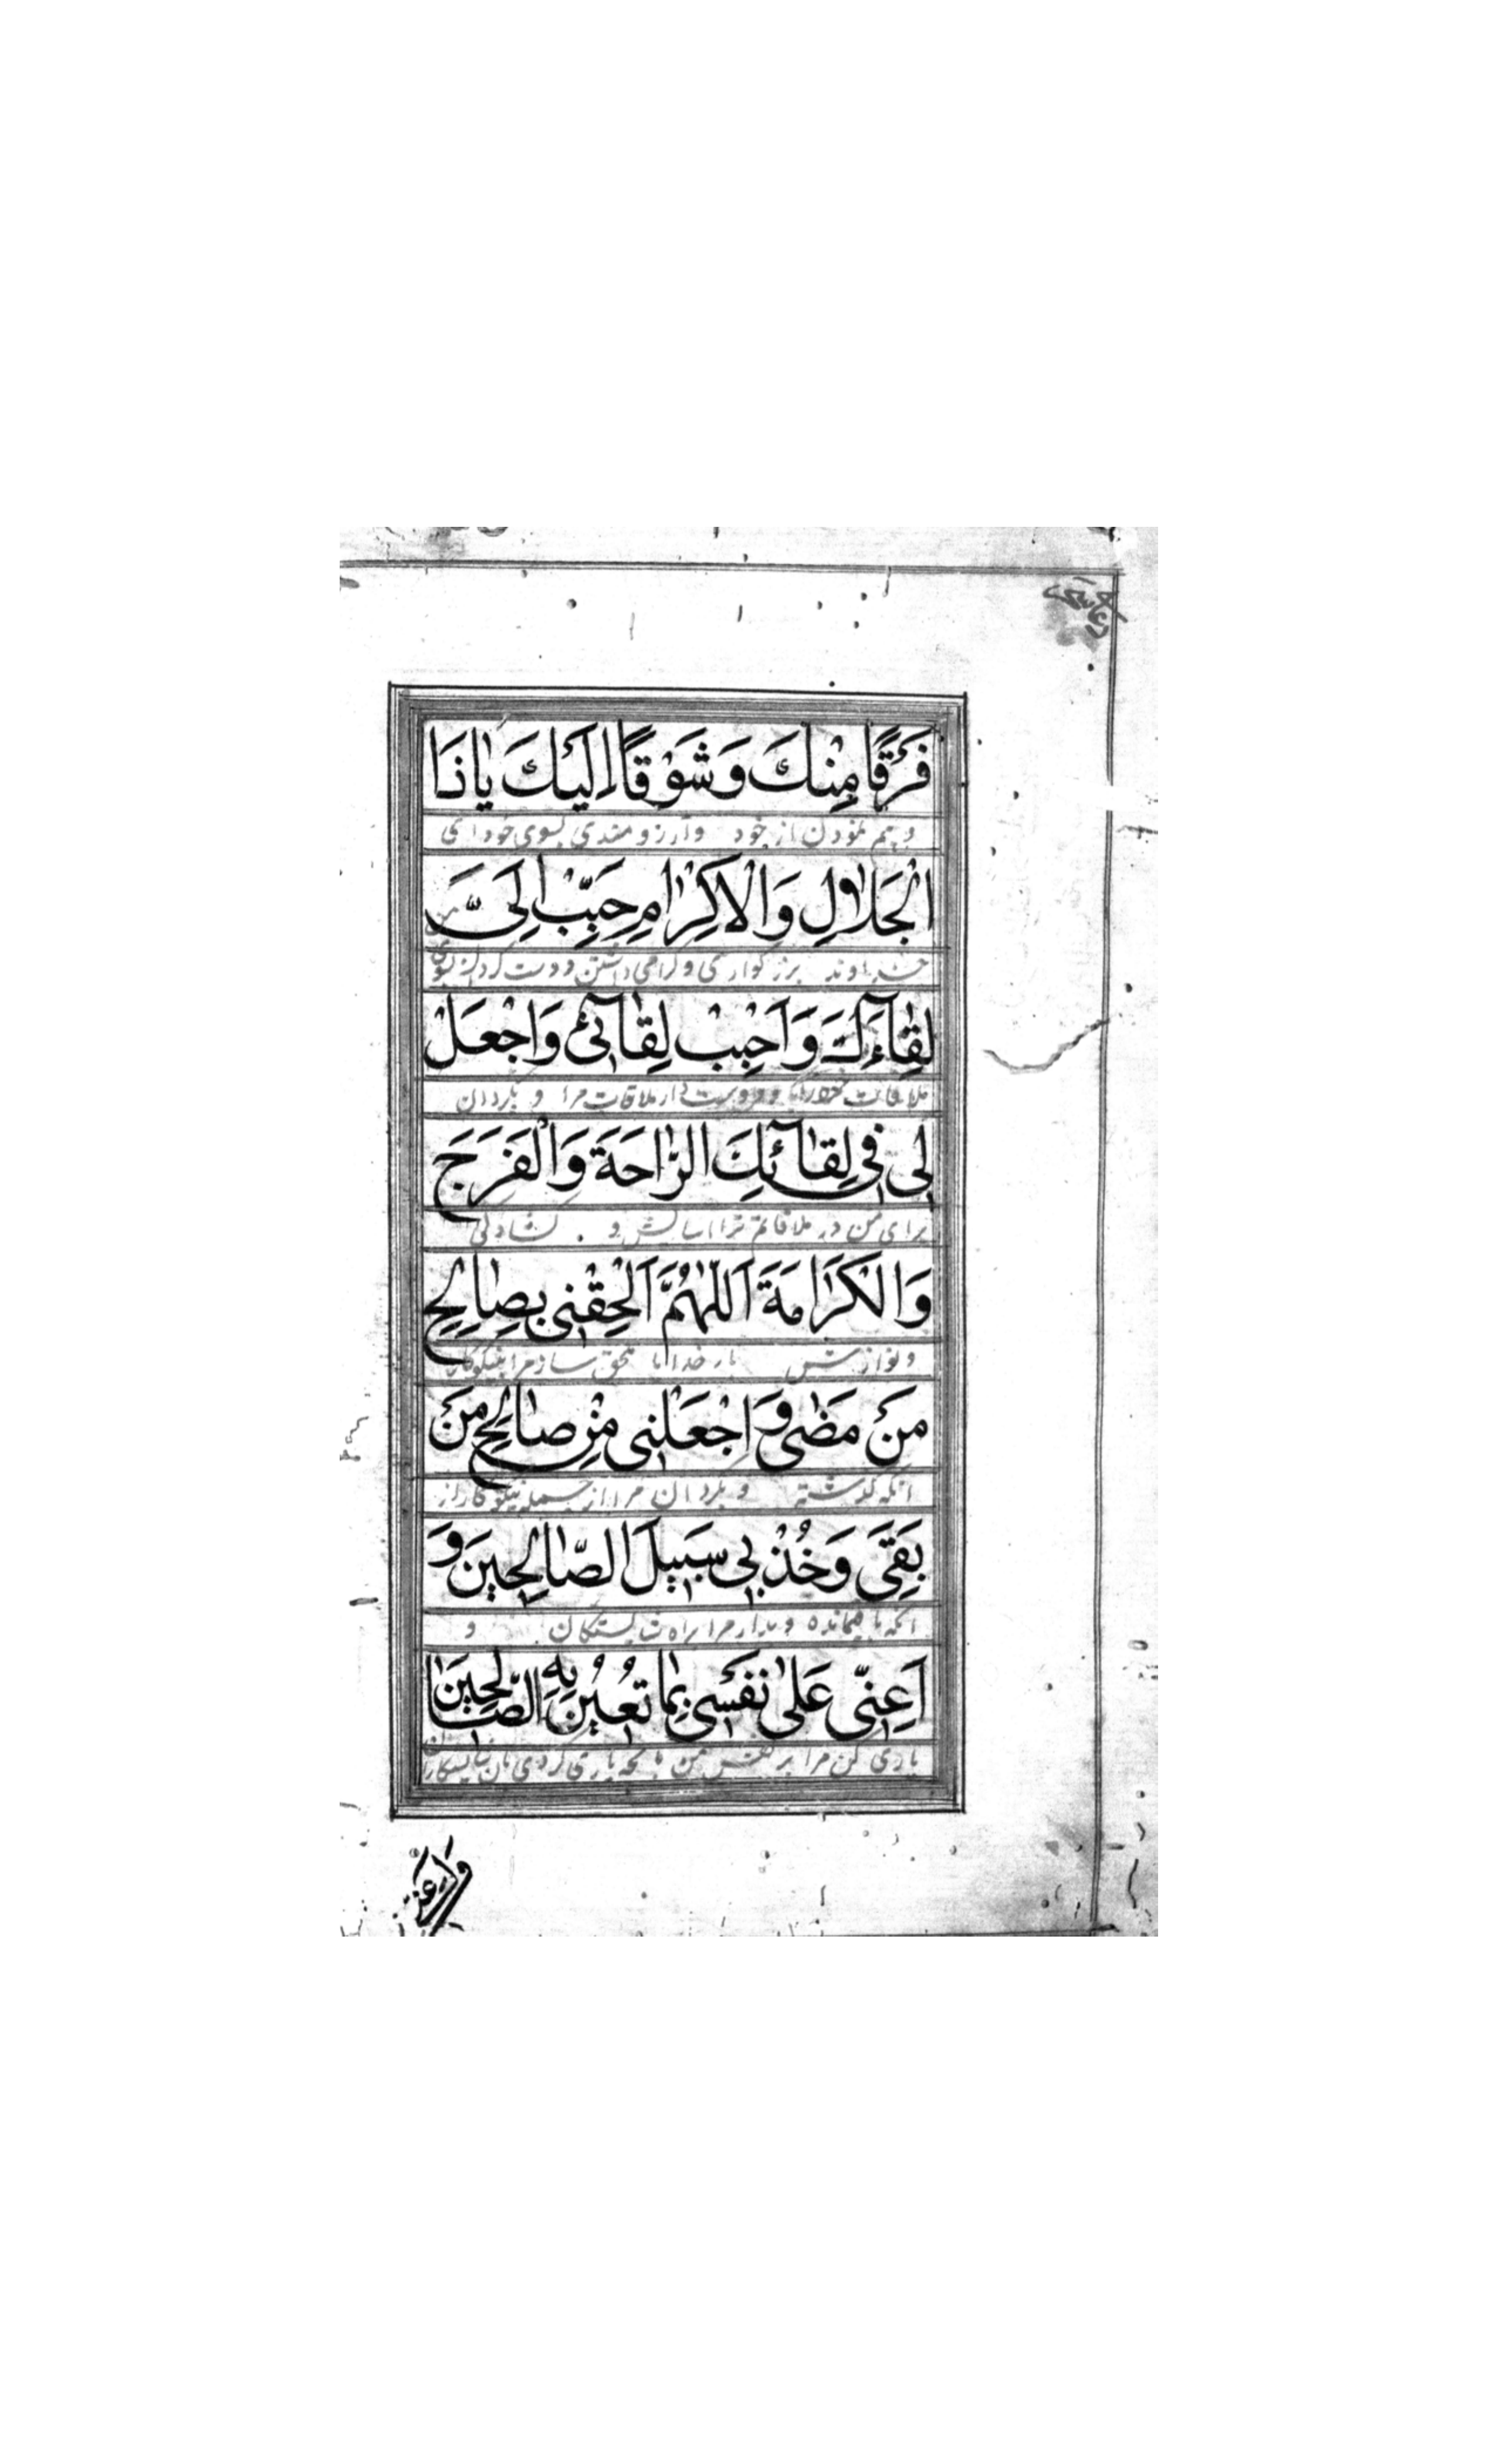 فَرَقًا مِنْكَ وَشَوْقًا اِلَيْكَ يٰا ذَا
و بیم نمودن از خود و آرزومندی بسوی خود ای
الْجَلٰالِ وَالْاِكْرٰامِ حَبِّبْ اِلَىَّ
خداوند بزرگواری و گرامی داشتن دوست گردان بسوی
لِقٰاءَكَ وَاَحْبِبْ لِقٰآئى وَاجْعَلْ
ملاقات خود را و دوست دار ملاقات مرا و بگردان
لى فى لِقٰآئِكَ الرّٰاحَةَ وَالْفَرَجَ
برای من در ملاقات ترا اسایش و گشادگی
وَالْكَرٰامَةَ اَللّٰهُمَّ اَلْحِقْنى بِصٰالِحِ
و نوازش بار خدایا ملحق ساز مرا بنیکوکار
مَنْ مَضٰى وَاجْعَلْنى مِنْ صٰالِحِ مَنْ
انکه گذشته و بگردان مرا از جمله نیکوکار از
بَقِىَ وَخُذْ بى سَبيلَ الصّٰالِحينَ وَ
انکه باقیمانده و بدار مرا براه شایستگان و
اَعِنّى عَلىٰ نَفْسى بِمٰا تُعينُ بِهِ الصّٰالِحينَ
یاری کن مرا بر نفس من بانچه یاری کردی بان